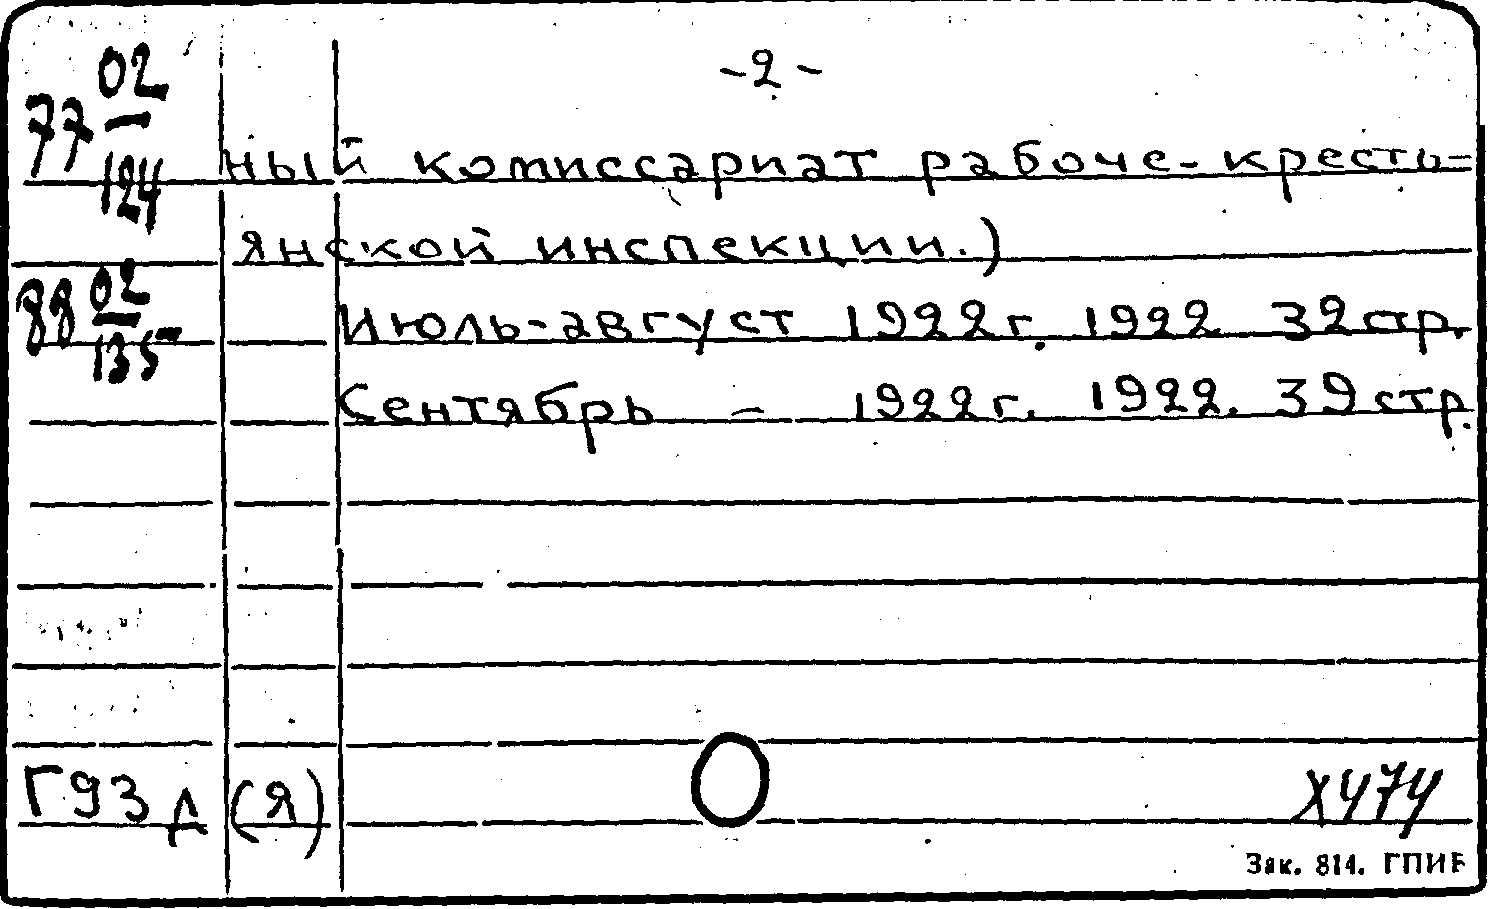 -2-
77 02/124
ный комиссариат рабоче-кресть-
янской инспекции.)
88 02/135
Июль-август 1922г. 1922. 32стр.
Сентябрь - 1922г. 1922. 39стр.
Г93д (Я)
Х474
Зак. 814. ГПИБ